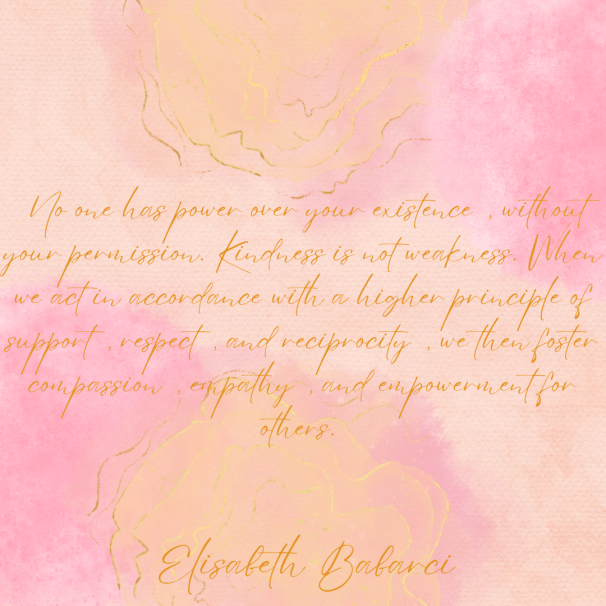 No one has power over your existence , without
your permission. Kindness is not weakness. When
we act in accordance with a higher principle of
support , respect , and reciprocity , we then foster
compassion , empathy , and empowerment for
others.
Elisabeth Babarci